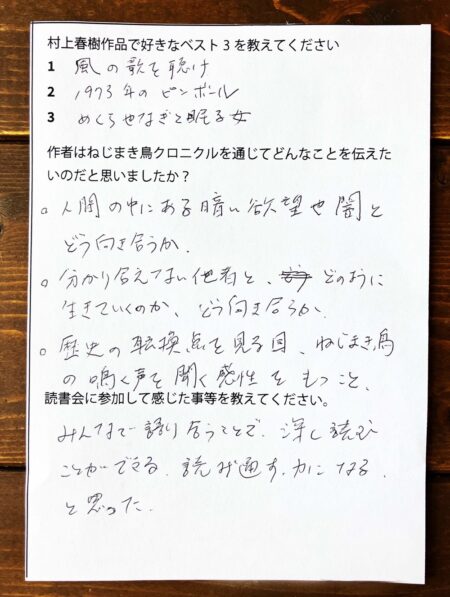 村上春樹作品で好きなベスト3を教えてください
1 風の歌を聴け
2 1973年のピンボール
3 めくらやなぎと眠る女
作者はねじまき鳥クロニクルを通じてどんなことを伝えた
いのだと思いましたか？
○ 人間の中にある暗い欲望や闇と
どう向き合うか.
○ 分かり合えてない他者と、どのように
生きていくのか、どう向き合うか.
○ 歴史の転換点を見る目、ねじまき鳥
の鳴く声を聞く感性をもつこと、
読書会に参加して感じた事等を教えてください。
みんなで語り合うことで、深し読む
ことができる、読み通す力になる、
と思った.